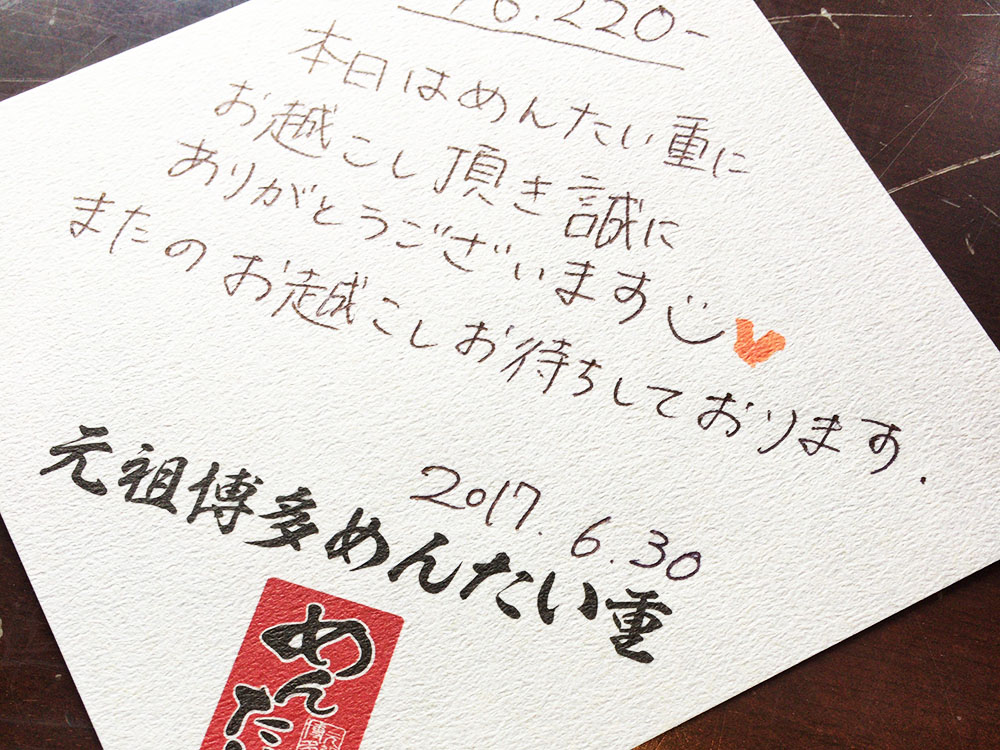 6.220-
本日はめんたい重に
お越こし頂き誠に
ありがとうございます
またのお越こしお待ちしております.
2017.6.30
元祖博多めんたい重
めんた